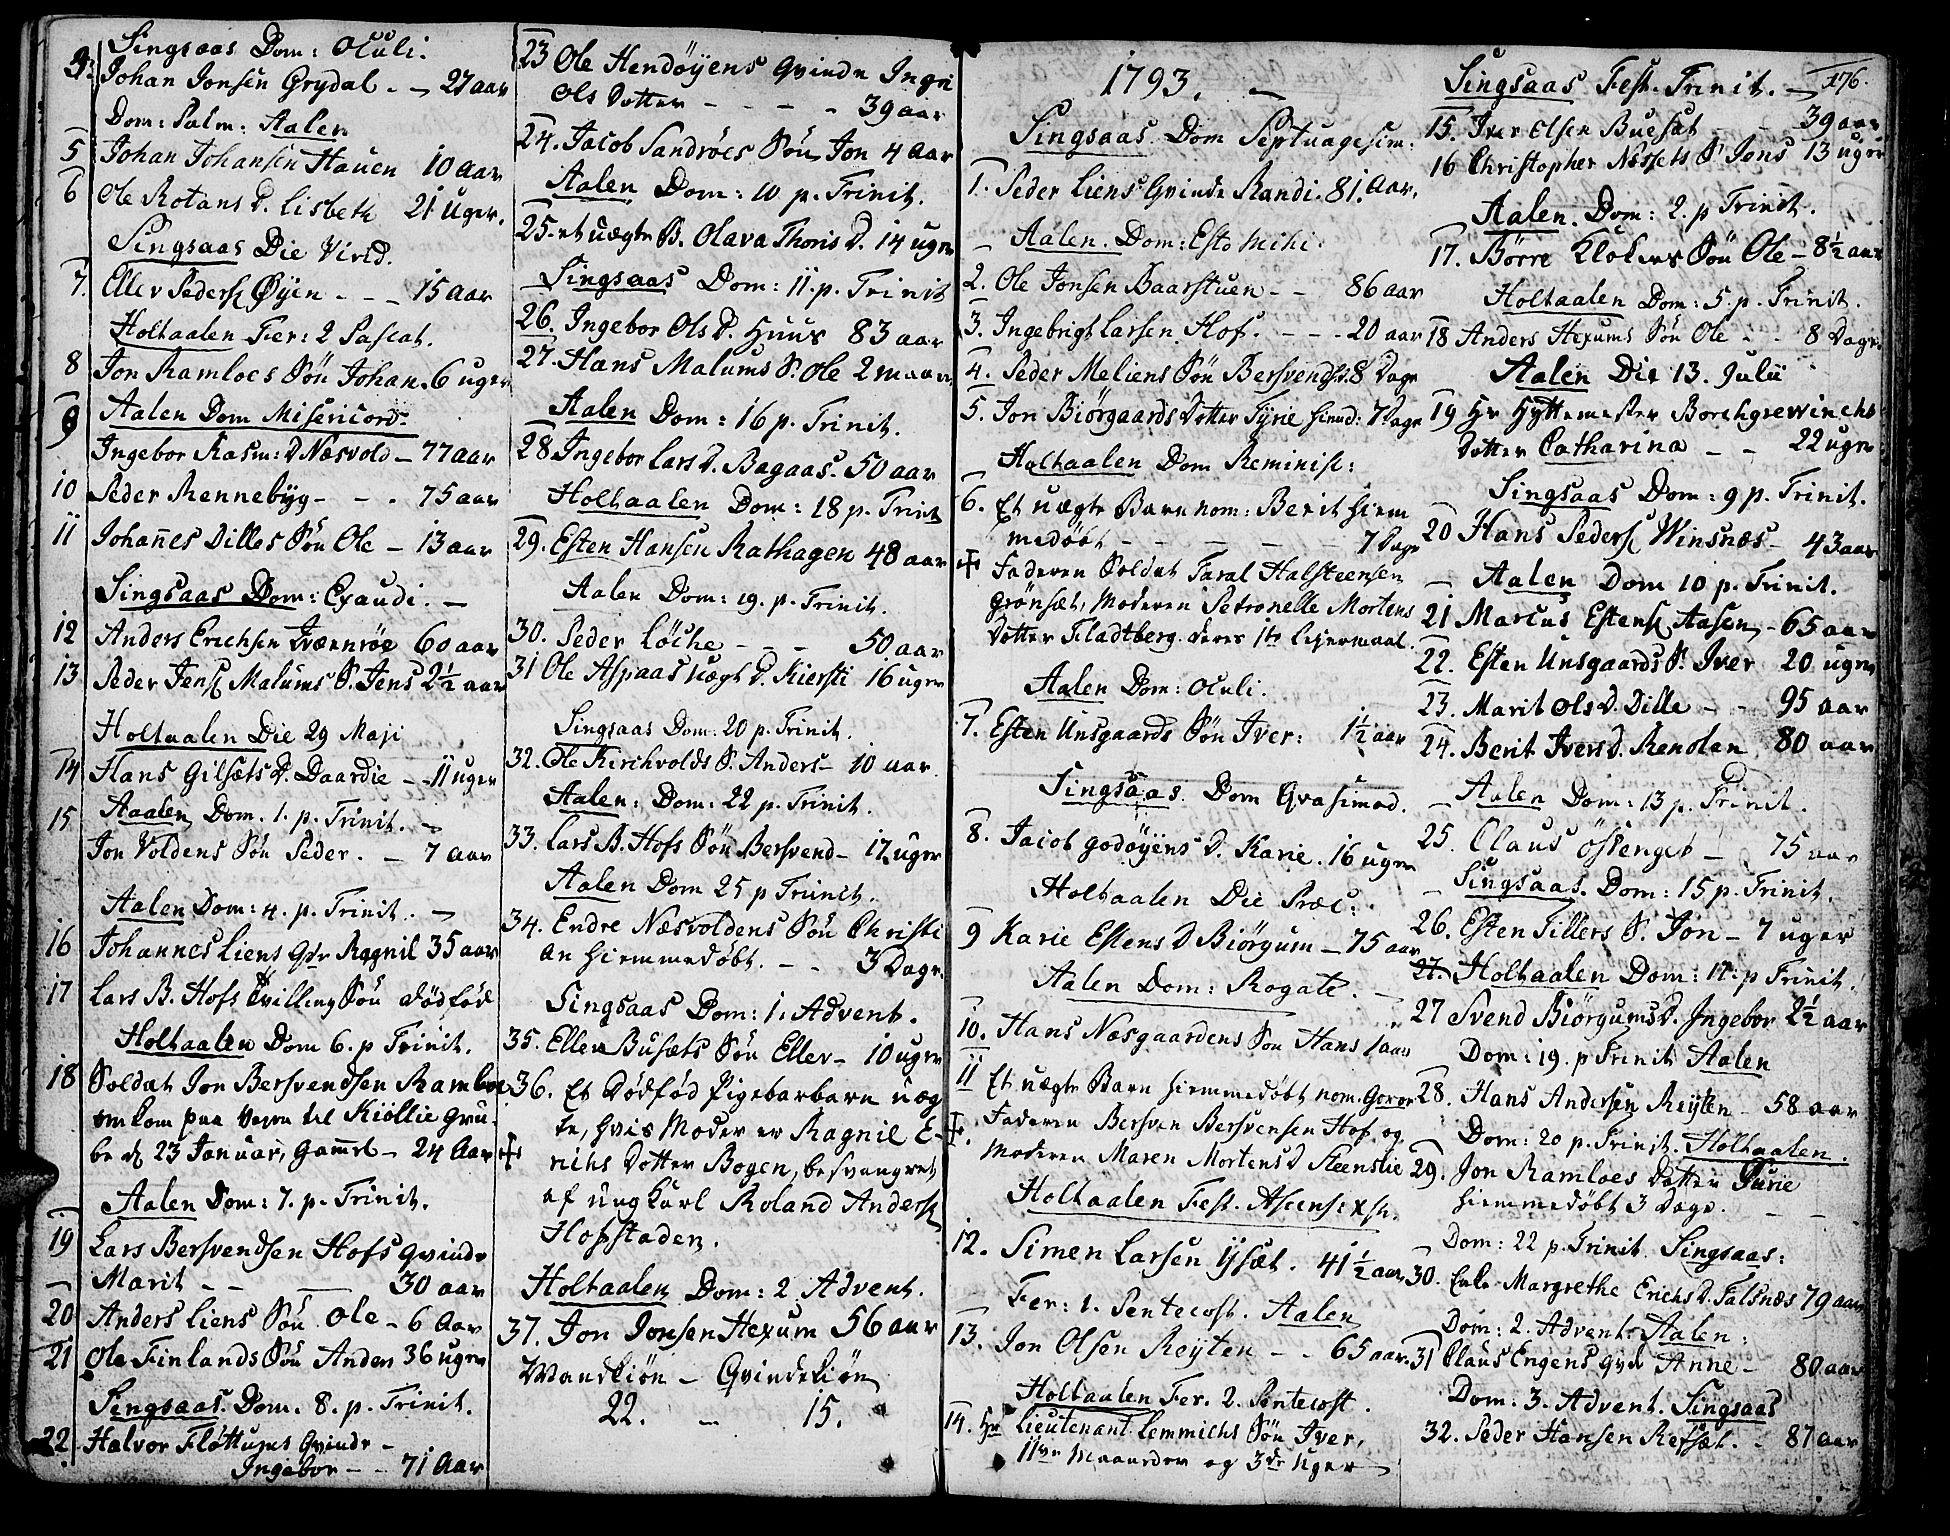 Singsaas Dom: Oculi.
4. Johan Jonsen Grydal - - 27 aar
Dom: Palm: Aalen
5 Johan Johansen Hauen 10 aar
6 Ole Rotans D. Lisbeth 21 Uger.
Singsaas Die Virid.
7. Eller Peders. Øyen - - - 15 aar
Holtaalen Fer: 2 Pascat.
8 Jon Ramloes Søn Johan. 6 uger
Aalen Dom Misericord.
9 Ingebor Rasm: D Næsvold - 77 aar
10 Peder Rennebyg - - - 75 aar
11 Johañes Dilles Søn Ole - 13 aar
Singsaas Dom: Exaudi. -
12 Anders Erichsen Kværnrøe 60 aar
13 Peder Jens. Malums S. Jens 2½ aar
Holtaalen Die 29 Maji
14 Hans Gilsæts D. Daardie - 11 uger
Aaalen Dom. 1. p. Trinit. -
15 Jon Voldens Søn Peder. - 7 aar
Aalen Dom: 4. p. Trinit. -
16 Johannes Liens Qde Ragnil 35 aar
17 Lars B. Hofs Tvilling Søn dødfød
Holtaalen Dom 6. p Trinit.
18 Soldat Jon Bersvendsen Ramloe
omkom paa Veyen til Kiöllie Gru-
be d. 23 Januar, Gaml - 24 Aar
Aalen Dom: 7. p. Trinit.
19 Lars Bersvendsen Hofs Qvinde
Marit - - 30 aar
20 Anders Liens Søn Ole - 6 Aar
21 Ole Finlands Søn Anders 36 uger
Singsaas. Dom. 8. p. Trinit.
22. Halvor Fløttums Qvinde -
Ingebor - - 71 Aar
23 Ole Hendøyens Qvinde Ingri
Ols Dotter - - - - 39 aar
24. Jacob Sandrøes Søn Jon 4 Aar
Aalen Dom: 10 p. Trinit.
25. et uægte B. Olava Thoris D. 14 uger
Singsaas Dom: 11. p. Trinit
26. Ingebor Ols D. Huus 83 aar
27. Hans Malums S. Ole 2 maan
Aalen Dom: 16 p. Trinit.
28 Ingebor Lars D. Bagaas. 50 aar
Holtaalen Dom: 18 p. Trinit
29. Esten Hansen Rathagen 48 aar
Aalen Dom: 19. p. Trinit.
30. Peder Löche - - - 50 aar
31 Ole Aspaas uægt D. Kiersti 16 uger
Singsaas Dom: 20 p. Trinit.
32. Ole Kirchvolds S. Anders - 10 aar
Aalen: Dom: 22 p. Trinit.
33. Lars B. Hofs Søn Bersvend - 17 uger
Aalen Dom 25 p Trinit.
34. Endre Næsvoldens Søn Christi
an hiemmedøbt. - - 3 Dage.
Singsaas Dom: 1. Advent.
35. Eller Busæts Søn Eller - 10 uger
36. Et Dødfød Pigebarbarn uæg
te, hvis Moder er Ragnil E-
richs Dotter Bogen, besvangret
af ung Karl Roland Anders.
Hofstaden.
Holtaalen Dom: 2 Advent.
37. Jon Jonsen Hexum 56 aar
Mandkiön - Qvindekiön
22. - 15.
1793. -
Singsaas Dom Septuagesim:
1. Peder Liens Qvinde Randi. 81. Aar.
Aalen. Dom: Esto Mihi
2. Ole Jonsen Baarstuen - - 86 aar
3. Ingebrigt Larsen Hof. - - - 20 aar
4. Peder Meliens Søn Bersvend 8 Dage
5. Jon Biörgaards Dotter Tyrie hiemd: 7 Dage
Holtaalen Dom Reminisc:
6. Et uægte Barn nom: Berit hiem
medøbt - - - - - 7 Dage
Faderen Soldat Taral Halsteensen
Grönsæt, Moderen Petronelle Mortens
Dotter Fladtberg. deres 1te Leyermaal.
Aalen Dom: Oculi.
7. Esten Unsgaards Søn Iver: 1½ aar
Singsaas. Dom Qvasimod.
8. Jacob Godøyens D. Karie. 16 uger
Holtaalen Die Præc:
9 Karie Estens D Biörgum - 75 aar
Aalen Dom: Rogate. -
10. Hans Næsgaardens Søn Hans 1 aar
11 Et uægte Barn hiemmedøbt nom. Goror
Faderen Bersven Bersvensen Hof, og
Moderen Maren Mortens D Steenslie
Holtaalen Fest. Ascens: Xsti.
12. Simen Larsen Ysæt. 41½ aar
Fer: 1. Pentecost. Aalen
13. Jon Olsen Reyten - - 65 aar
Holtaalen Fer. 2. Pentecost.
14. Hr Lieutenant Lemmichs Søn Iver,
11ve Maaneder og 3de Uger
176.
Singsaas Fest. Trinit. -
15. Iver Olsen Buesæt - 39 aar
16 Christopher Næssets S. Jens 13 uger
Aalen. Dom: 2. p Trinit.
17. Börre Klokers Søn Ole - 8½ aar
Holtaalen Dom: 5. p. Trinit.
18 Anders Hexums Søn Ole - - 8 Dage
Aalen Die 13. Julii
19 Hr Hyttemester Borchgrewinchs
Dotter Catharina - - 22 uger
Singsaas Dom: 9 p. Trinit.
20 Hans Peders. Winsnæs - 43 aar
Aalen Dom 10 p. Trinit.
21 Marcus Estens. Aasen - 65 aar
22. Esten Unsgaards S. Iver 20 uger
23. Marit Ols D. Dille - - 95 aar
24. Berit Ivers D. Renolen 80 aar
Aalen Dom: 13 p. Trinit.
25. Claus Östenget - 75 aar
Singsaas. Dom: 15 p. Trinit.
26. Esten Tillers S. Jon - 7 uger
27. Holtaalen Dom: 17. p Trinit.
27 Svend Biörgums D. Ingebor 2½ aar
Dom: 19. p Trinit Aalen
28. Hans Andersen Reyten - 58 aar
Dom: 20 p. Trinit. Holtaalen.
29. Jon Ramloes Dotter Purie
hiemmedøbt 3 Dage. - -
Dom: 22 p. Trinit. Singsaas:
30. Enke Margrethe Erichs D. Talsnæs 79 aar
Dom: 2. Advent. Aalen:
31 Claus Engens Qvde Anne - 80 aar
Dom: 3. Advent. Singsaas
32. Peder Hansen Refsæt. - 87 aar